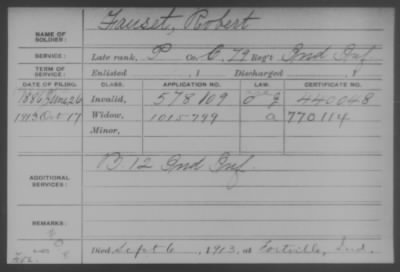 Fauset, Robert
NAME OF SOLDIER:
SERVICE: Late rank, P Co. C. 79 Reg't Ind Inf
TERM OF SERVICE: Enlisted , 1 Discharged , 1
DATE OF FILING. CLASS. APPLICATION NO. LAW. CERTIFICATE NO.
1886 June 26 Invalid, 578109 440048
1913 Oct 17 Widow, 1015799 a 770114
Minor,
B. 12 Ind Inf.
ADDITIONAL SERVICES:
REMARKS:
Died Sept 6, 1913, at Fortville, Ind.